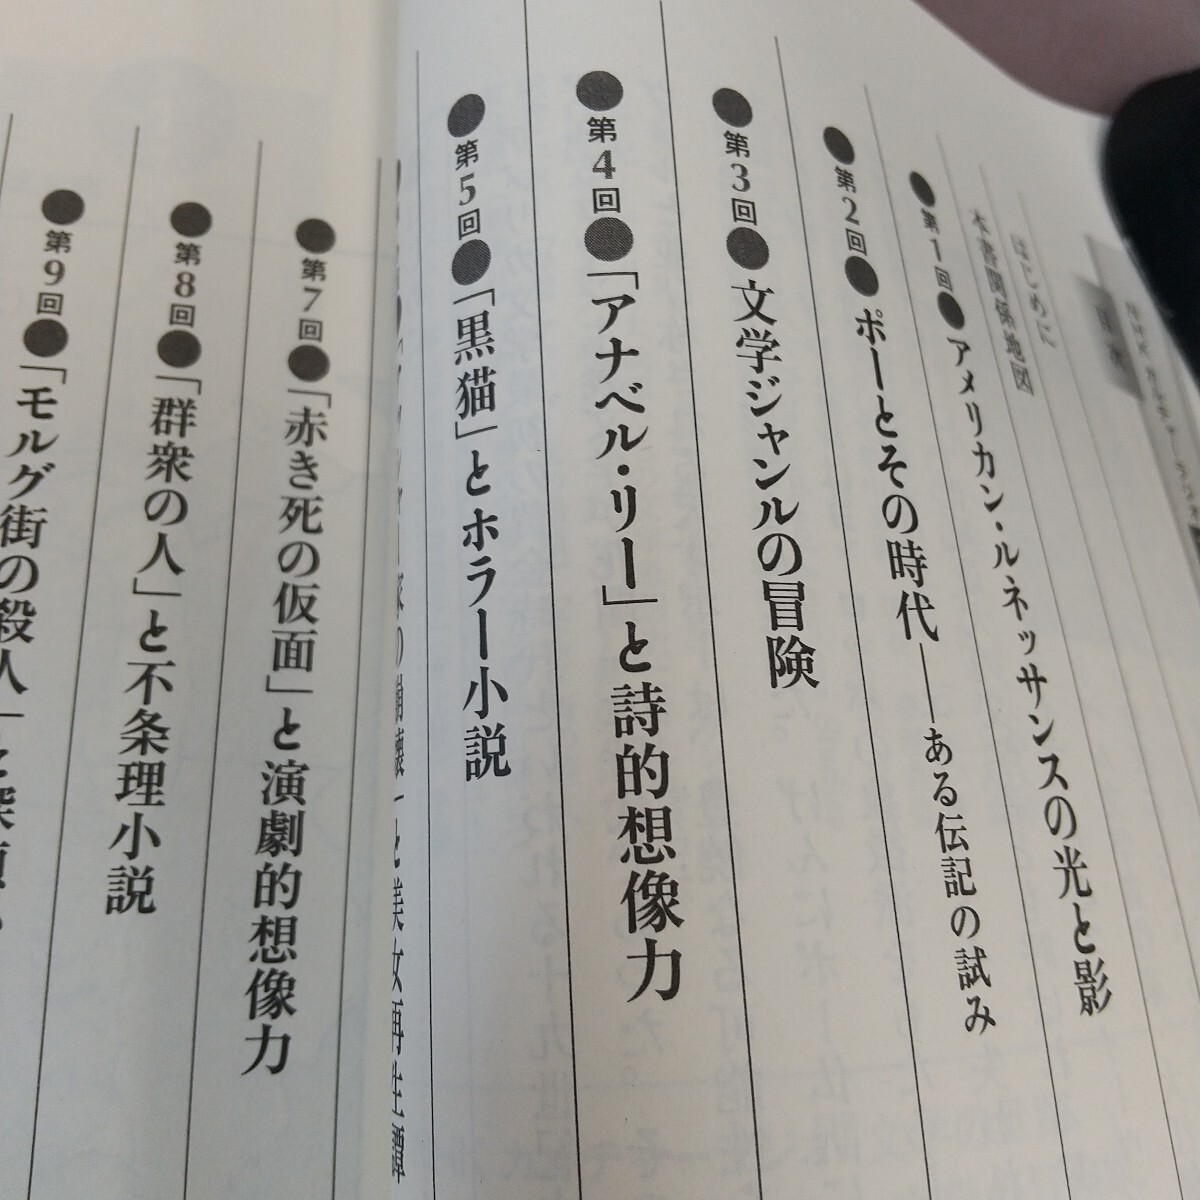 目次
はじめに
本書関係地図
●第1回●アメリカン・ルネッサンスの光と影
●第2回●ポーとその時代――ある伝記の試み
●第3回●文学ジャンルの冒険
●第4回●「アナベル・リー」と詩的想像力
●第5回●「黒猫」とホラー小説
家の崩壊」と美女再生譚
●第7回●「赤き死の仮面」と演劇的想像力
●第8回●「群衆の人」と不条理小説
●第9回●「モルグ街の殺人」と探偵